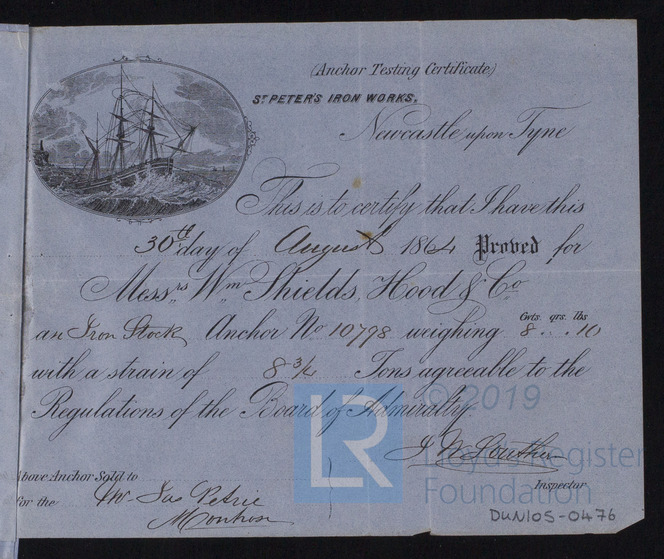 (Anchor Testing Certificate)
ST PETER'S IRON WORKS.
Newcastle upon Tyne
This is to certify that I have this
30th day of August 1864 Proved for
Messrs Wm Shields, Hood & Co
Cwts. qrs. lbs
an Iron Stock Anchor No 10798 weighing 8 . . 10
with a strain of 8 3/4 Tons agreeable to the
Regulations of the Board of Admiralty.
© 2019
LR
Lloyd's Register
Foundation
Inspector
Above Anchor Sold to
for the Mr Jas Petrie
Montrose
DUN105-0476